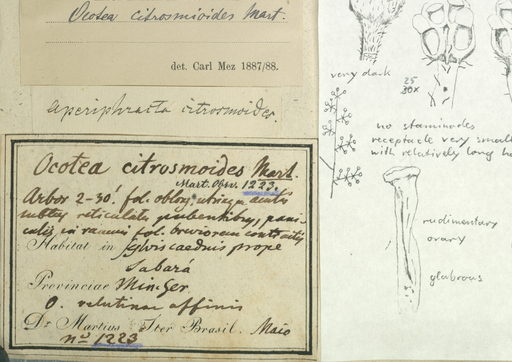 Ocotea citrosmioides Mart.
det. Carl Mez 1887/88.
aperiphracta citrosmoides.
Ocotea citrosmoides Mart.
Mart. Obsv. 1223.
Arbor 2-30'. fol. oblong. utrinque acutis
subtus reticulatis pubentibus, pani-
culis in ramis fol. brevioribus contractis
Habitat in sylvis caeduis prope
Sabará
Provinciae Min. Ger.
O. velutinae affinis
Dr. Martius Iter Brasil. Maio
no 1223
very dark
25
30x
no staminodes
receptacle very small
with relatively long
rudimentary
ovary
glabrous